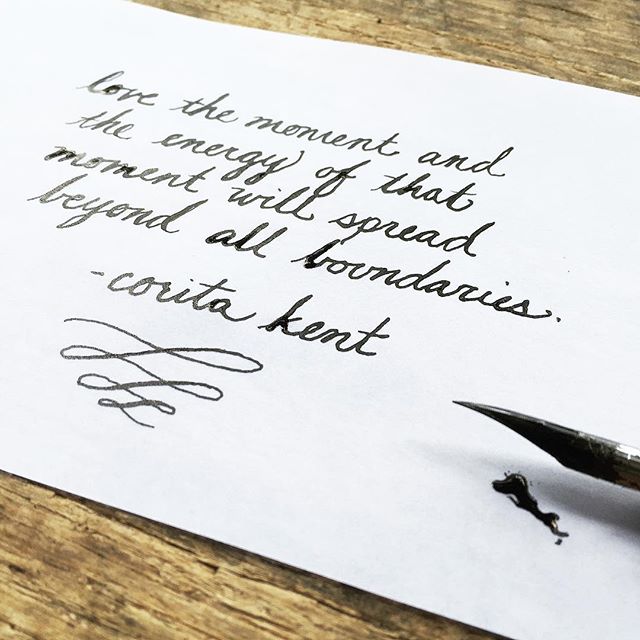 love the moment and
the energy of that
moment will spread
beyond all boundaries.
-corita kent